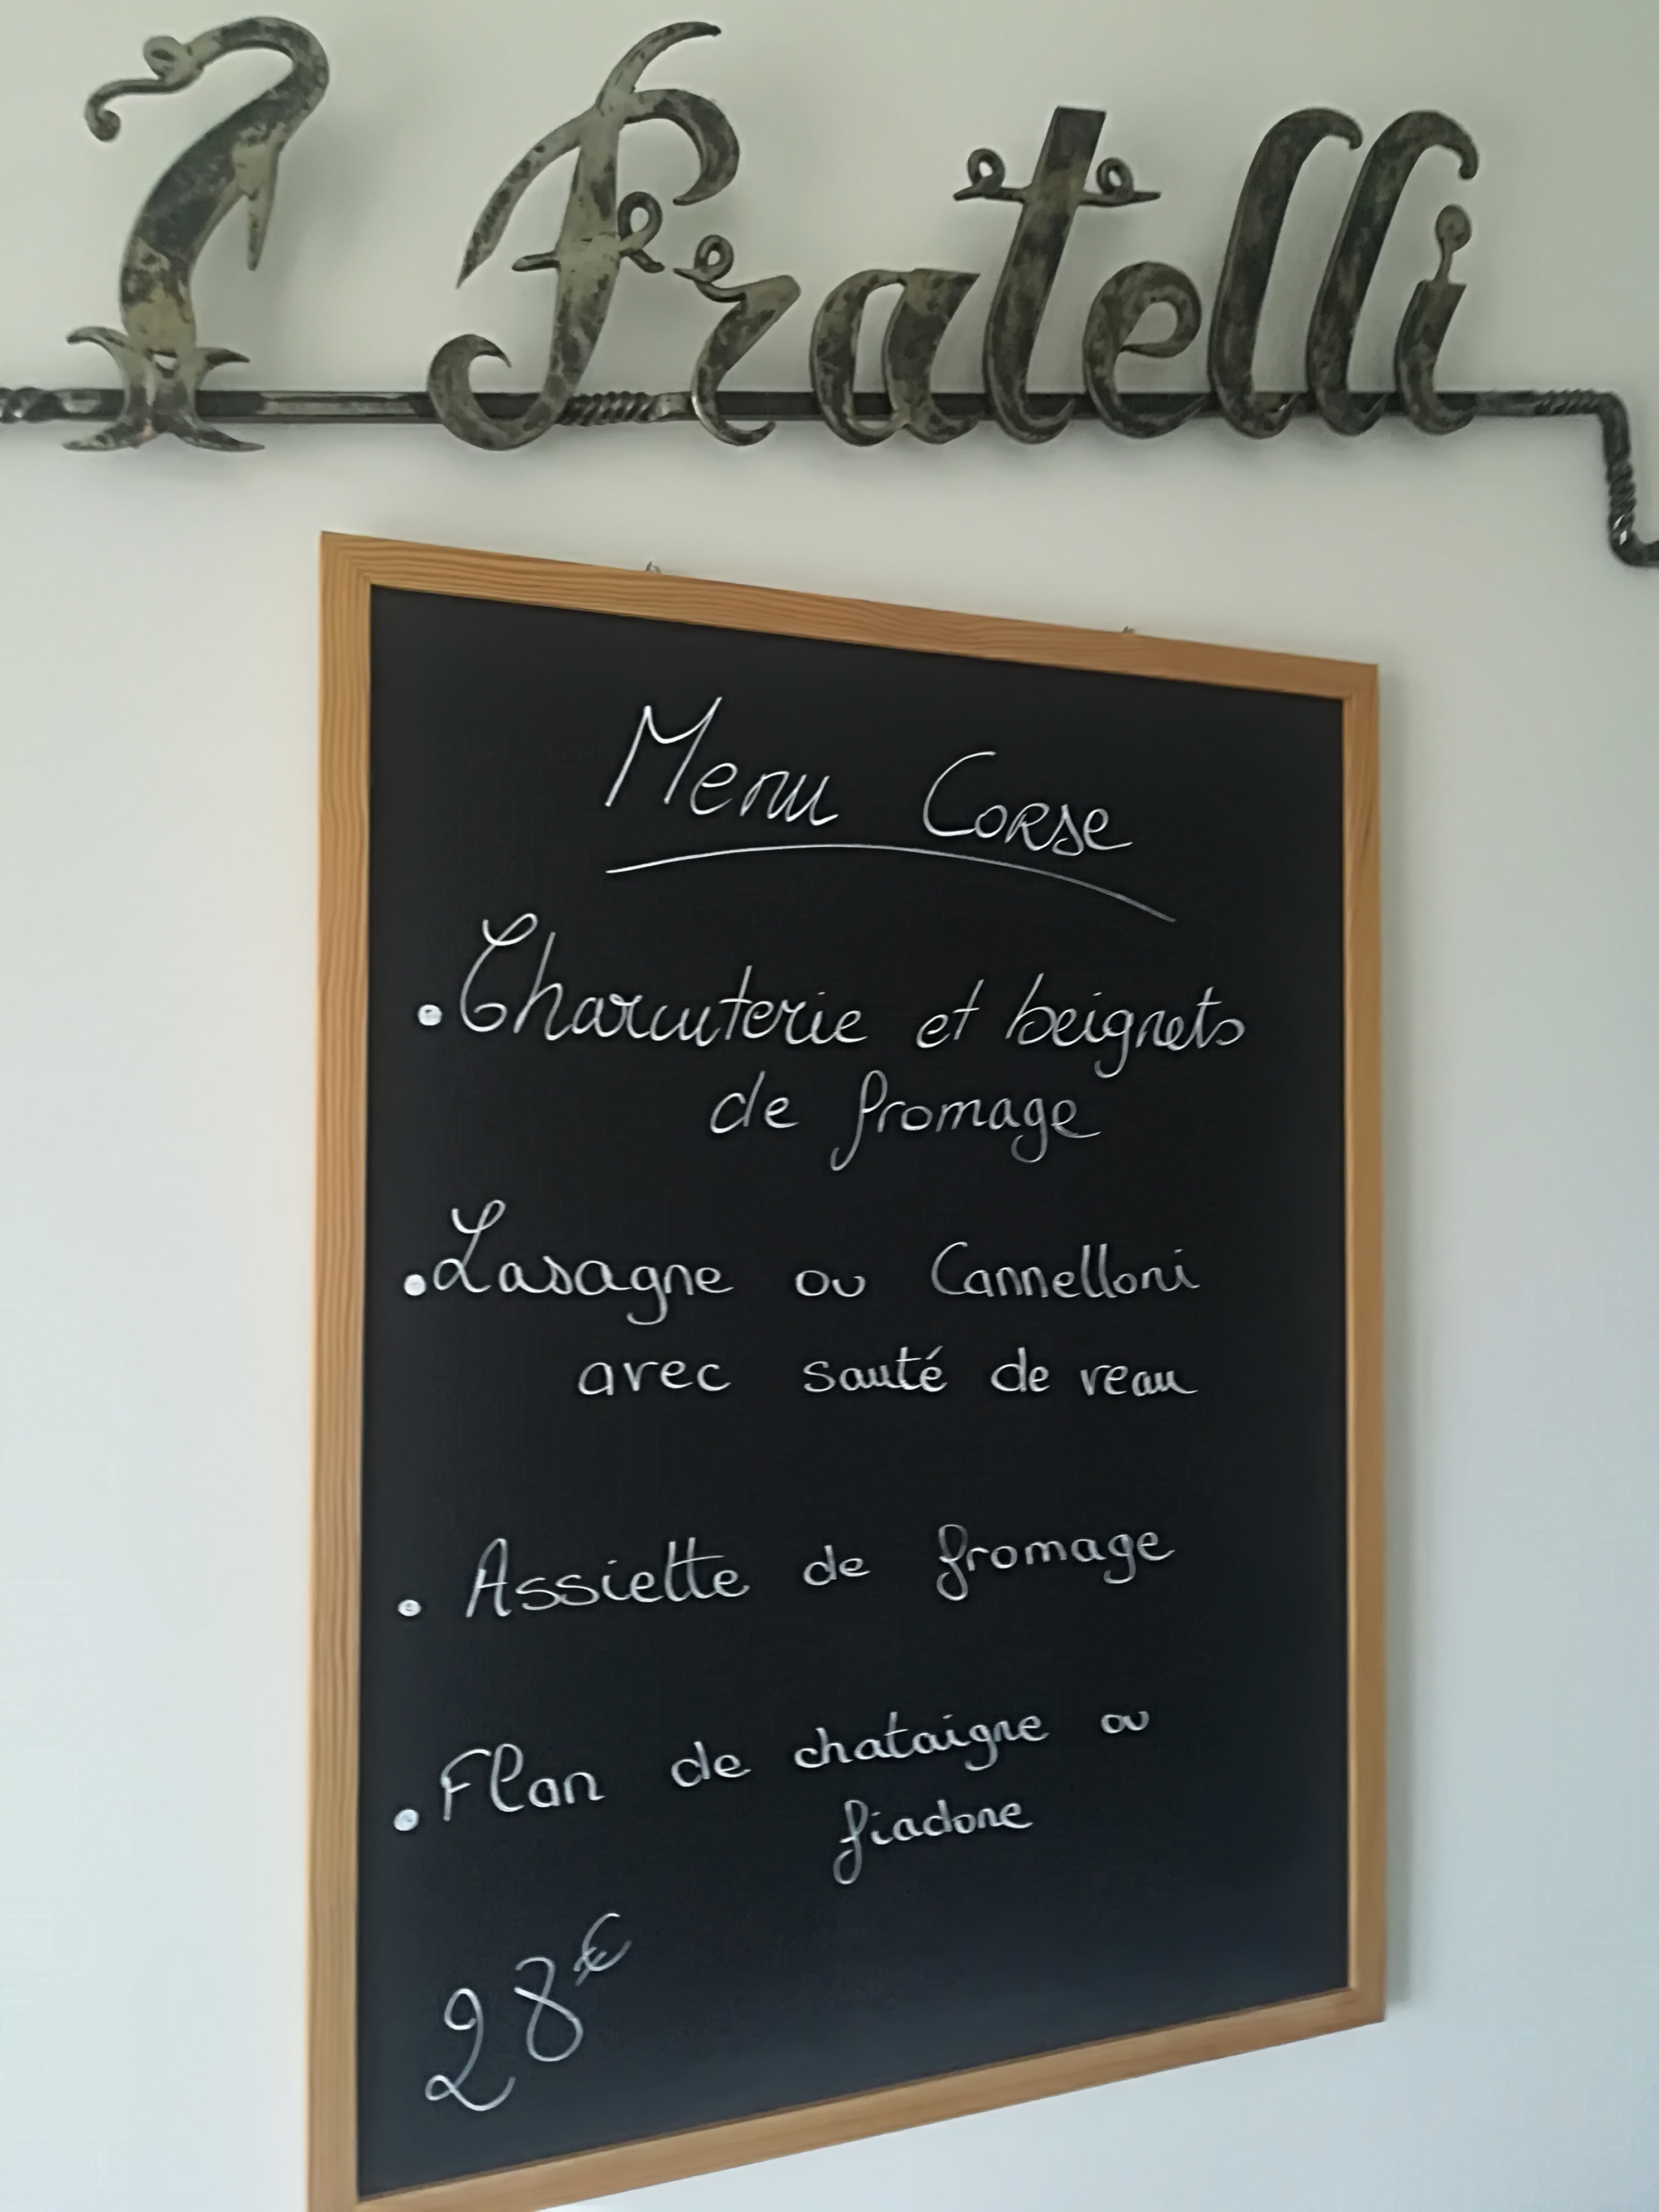 I Fratelli
Menu Corse
• Charcuterie et beignets
de fromage
• Lasagne ou Cannelloni
avec sauté de veau
• Assiette de fromage
• Flan de chataigne ou
fiadone
28€